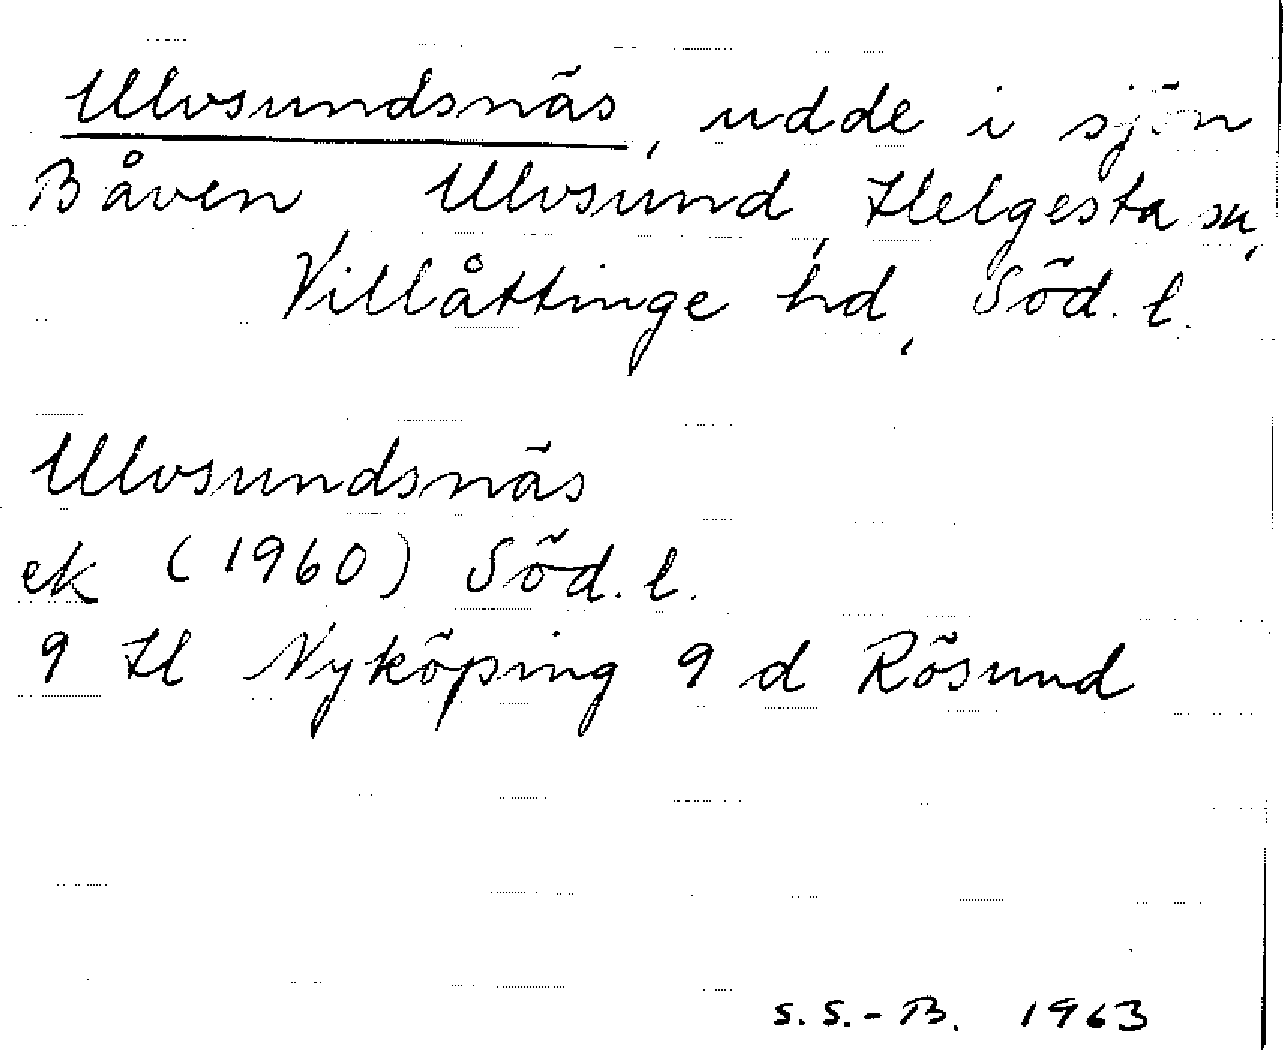 Ulvsundsnäs, udde i sjön
Båven, Ulvsund, Helgesta sn,
Villåttinge hd, Söd. l.
Ulvsundsnäs
ek (1960) Söd. l.
9 H Nyköping 9 d Rösund
S. S.-B. 1963